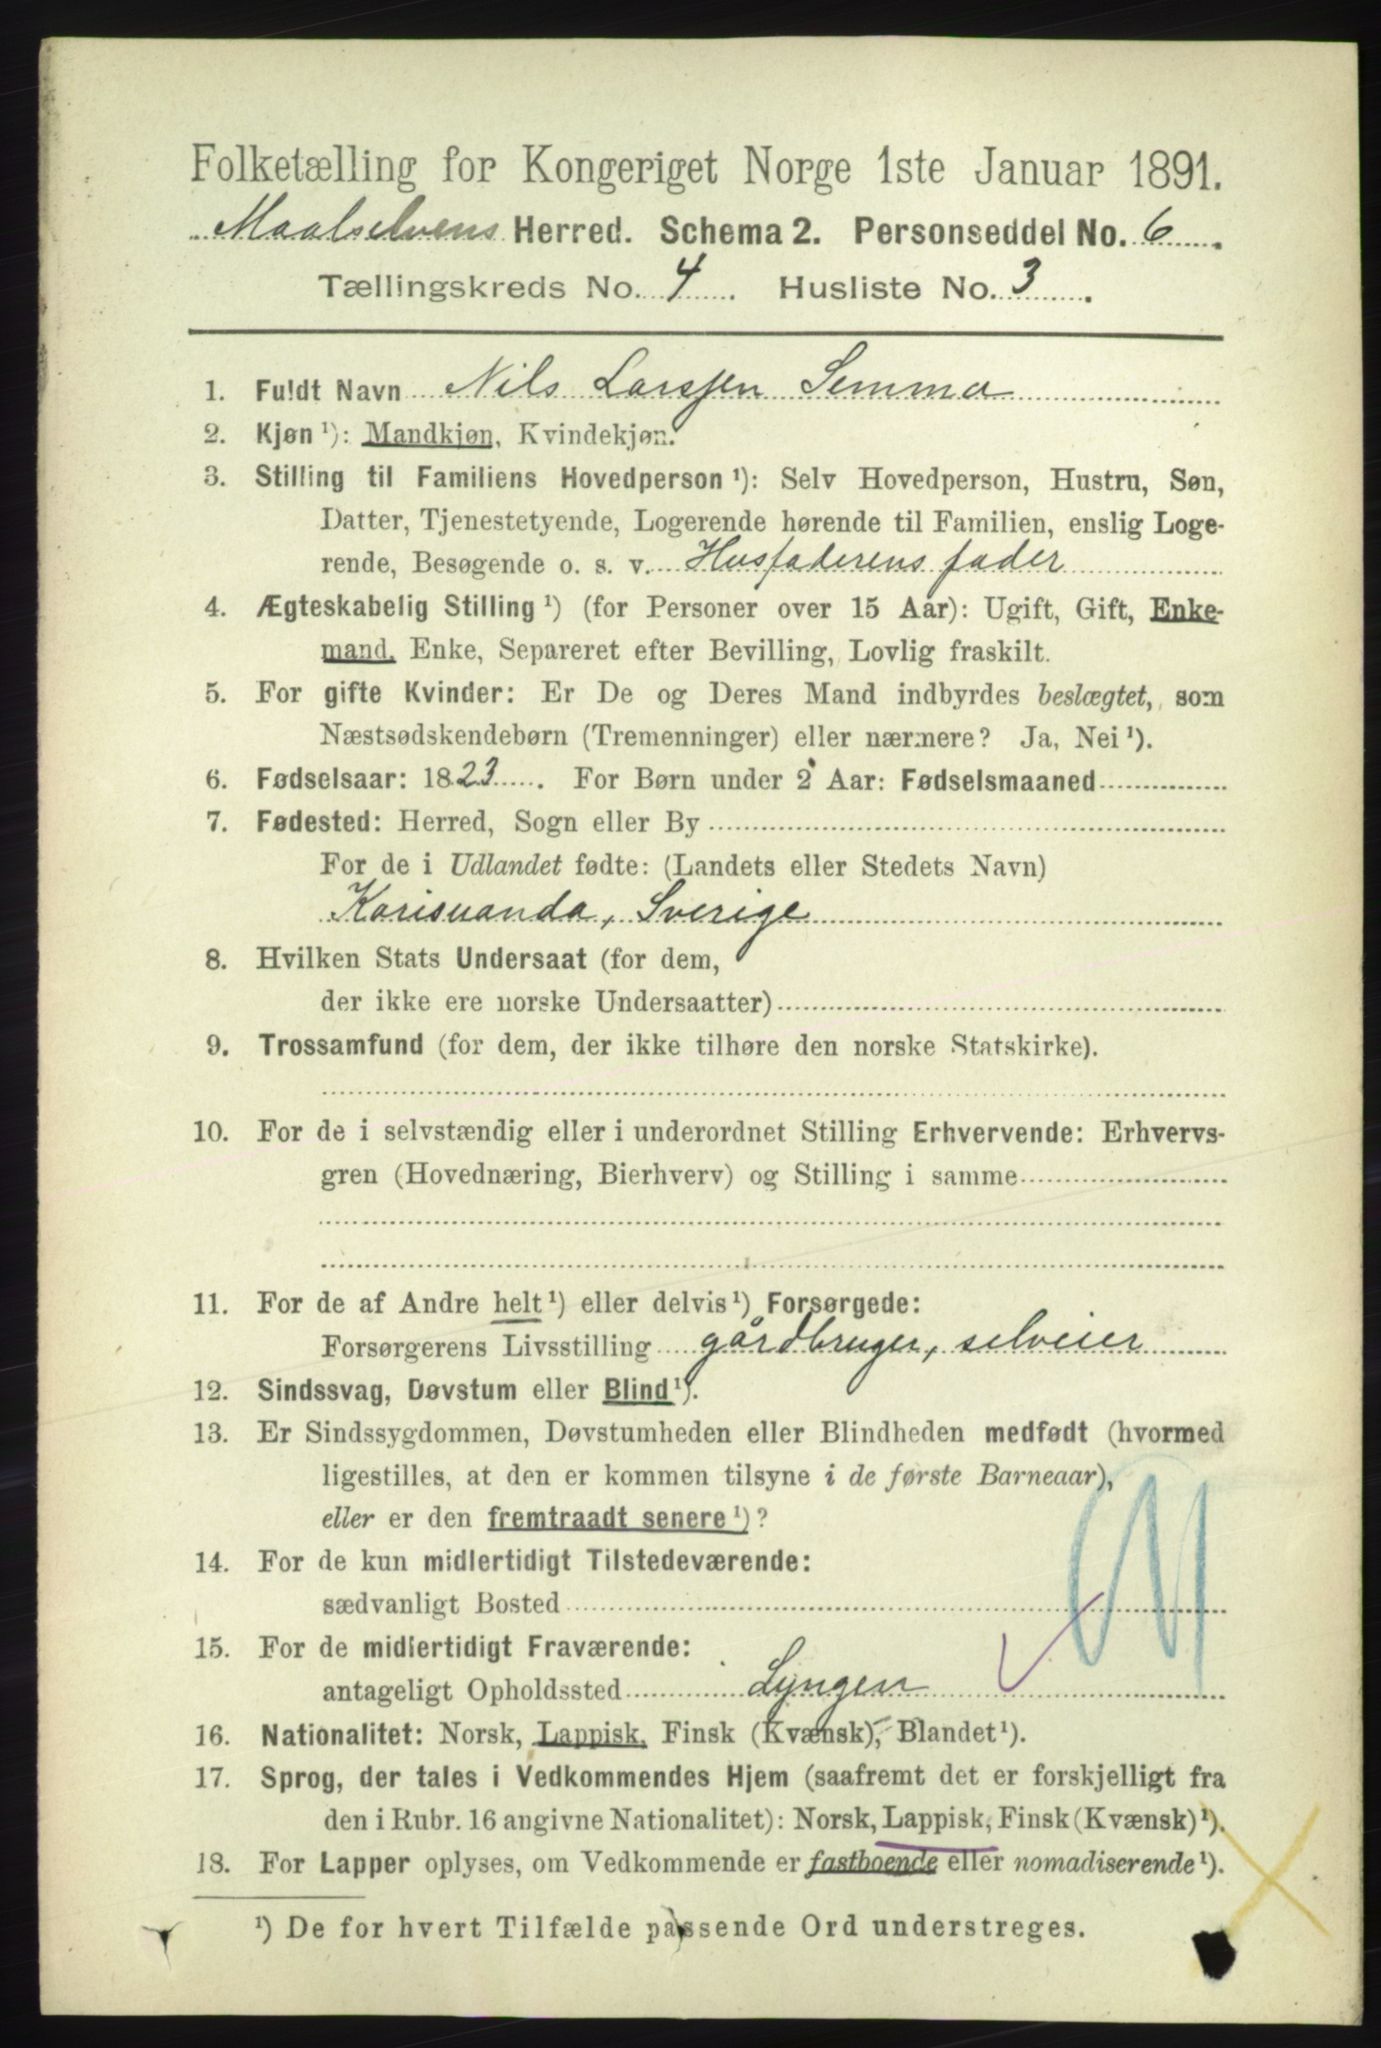 Folketælling for Kongeriget Norge 1ste Januar 1891.
Maalselvens Herred. Schema 2. Personseddel No. 6
Tællingskreds No. 4. Husliste No. 3.
1. Fuldt Navn Nils Larssen Semma
2. Kjøn ¹): Mandkjøn, Kvindekjøn.
3. Stilling til Familiens Hovedperson ¹): Selv Hovedperson, Hustru, Søn,
Datter, Tjenestetyende, Logerende hørende til Familien, enslig Loge-
rende, Besøgende o. s. v. Husfaderens fader
4. Ægteskabelig Stilling ¹) (for Personer over 15 Aar): Ugift, Gift, Enke-
mand, Enke, Separeret efter Bevilling, Lovlig fraskilt.
5. For gifte Kvinder: Er De og Deres Mand indbyrdes beslægtet, som
Næstsødskendebørn (Tremenninger) eller nærmere? Ja, Nei ¹).
6. Fødselsaar: 1823. For Børn under 2 Aar: Fødselsmaaned
7. Fødested: Herred, Sogn eller By
For de i Udlandet fødte: (Landets eller Stedets Navn)
Karisuanda, Sverige
8. Hvilken Stats Undersaat (for dem,
der ikke ere norske Undersaatter)
9. Trossamfund (for dem, der ikke tilhøre den norske Statskirke).
10. For de i selvstændig eller i underordnet Stilling Erhvervende: Erhvervs-
gren (Hovednæring, Bierhverv) og Stilling i samme
11. For de af Andre helt ¹) eller delvis ¹) Forsørgede:
Forsørgerens Livsstilling gårdbruger, selveier
12. Sindssvag, Døvstum eller Blind ¹).
13. Er Sindssygdommen, Døvstumheden eller Blindheden medfødt (hvormed
ligestilles, at den er kommen tilsyne i de første Barneaar),
eller er den fremtraadt senere ¹)?
14. For de kun midlertidigt Tilstedeværende:
sædvanligt Bosted
15. For de midlertidigt Fraværende:
antageligt Opholdssted Lyngen
16. Nationalitet: Norsk, Lappisk, Finsk (Kvænsk), Blandet ¹).
17. Sprog, der tales i Vedkommendes Hjem (saafremt det er forskjelligt fra
den i Rubr. 16 angivne Nationalitet): Norsk, Lappisk, Finsk (Kvænsk) ¹).
18. For Lapper oplyses, om Vedkommende er fastboende eller nomadiserende ¹).
¹) De for hvert Tilfælde passende Ord understreges.